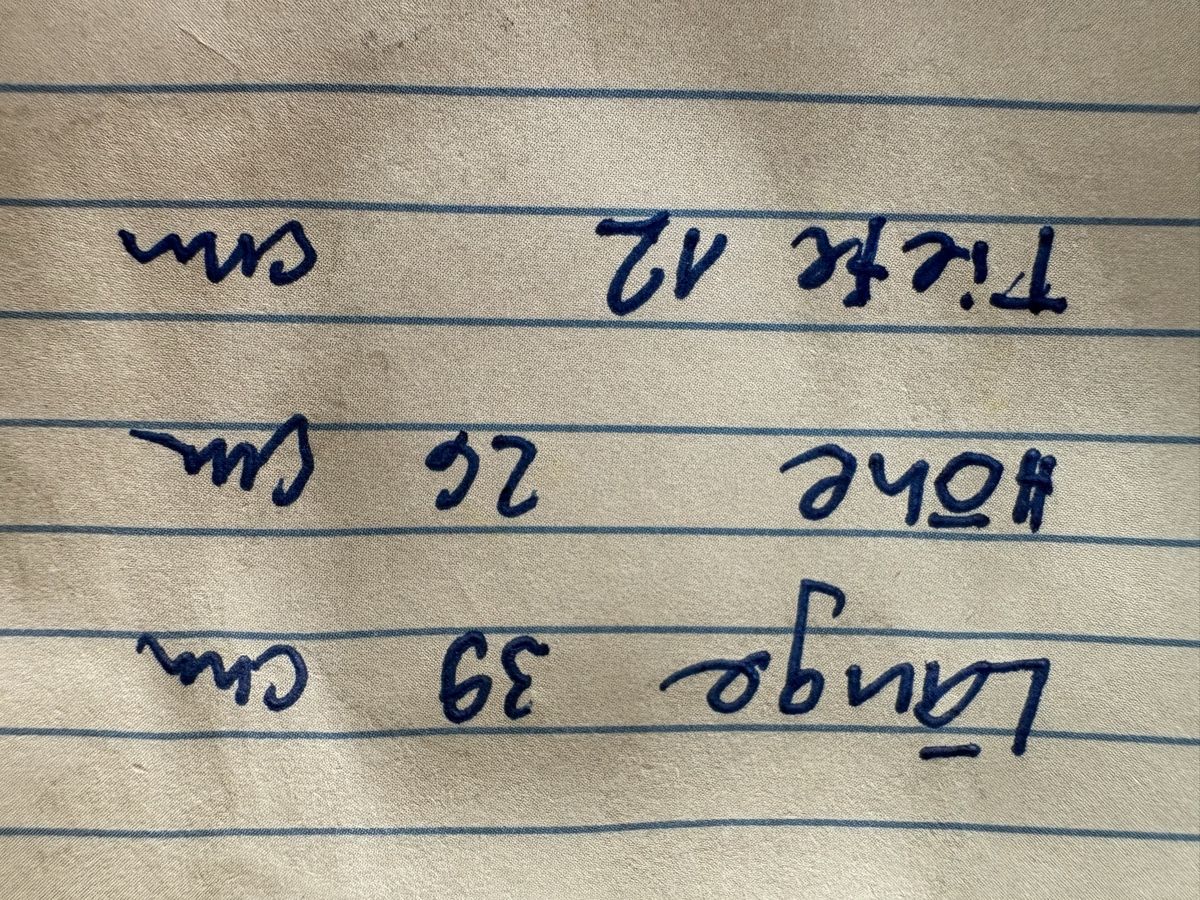 Länge 39 cm
Höhe 26 cm
Tiefe 12 cm